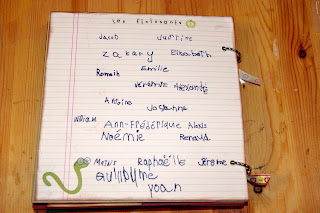 Les finissants
Jacob Justine
Zakary Elisabeth
Émilie
Romain
Véronique Alexandre
Antoine
Josanne
William
Ann-Frédérique Alexis
Noémie Renaud
Mathis Raphaëlle Jérôme
Guillaume
Yoan